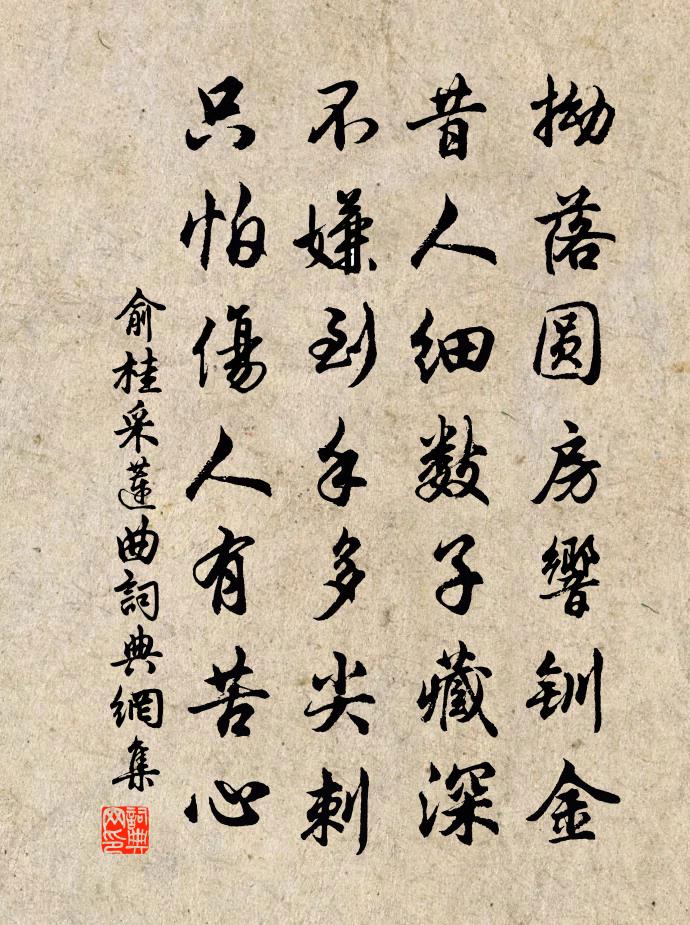 拗落圓房響釧金
昔人細數子藏深
不嫌到手多尖刺
只怕傷人有苦心
俞桂采蓮曲詞典網集
詞典网印